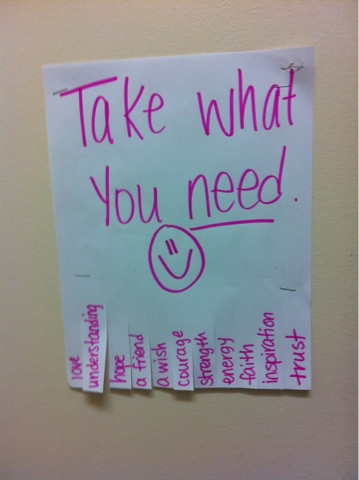 Take what
You need.
love
understanding
hope
a friend
a wish
courage
strength
energy
faith
inspiration
trust